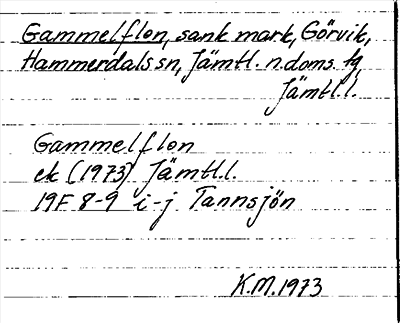 Gammelflon, sank mark, Görvik,
Hammerdals sn, Jämtl. n. doms. tg,
Jämtl. l.
Gammelflon
ek (1973) Jämtl. l.
19F 8-9 i-j Tannsjön
K.M. 1973